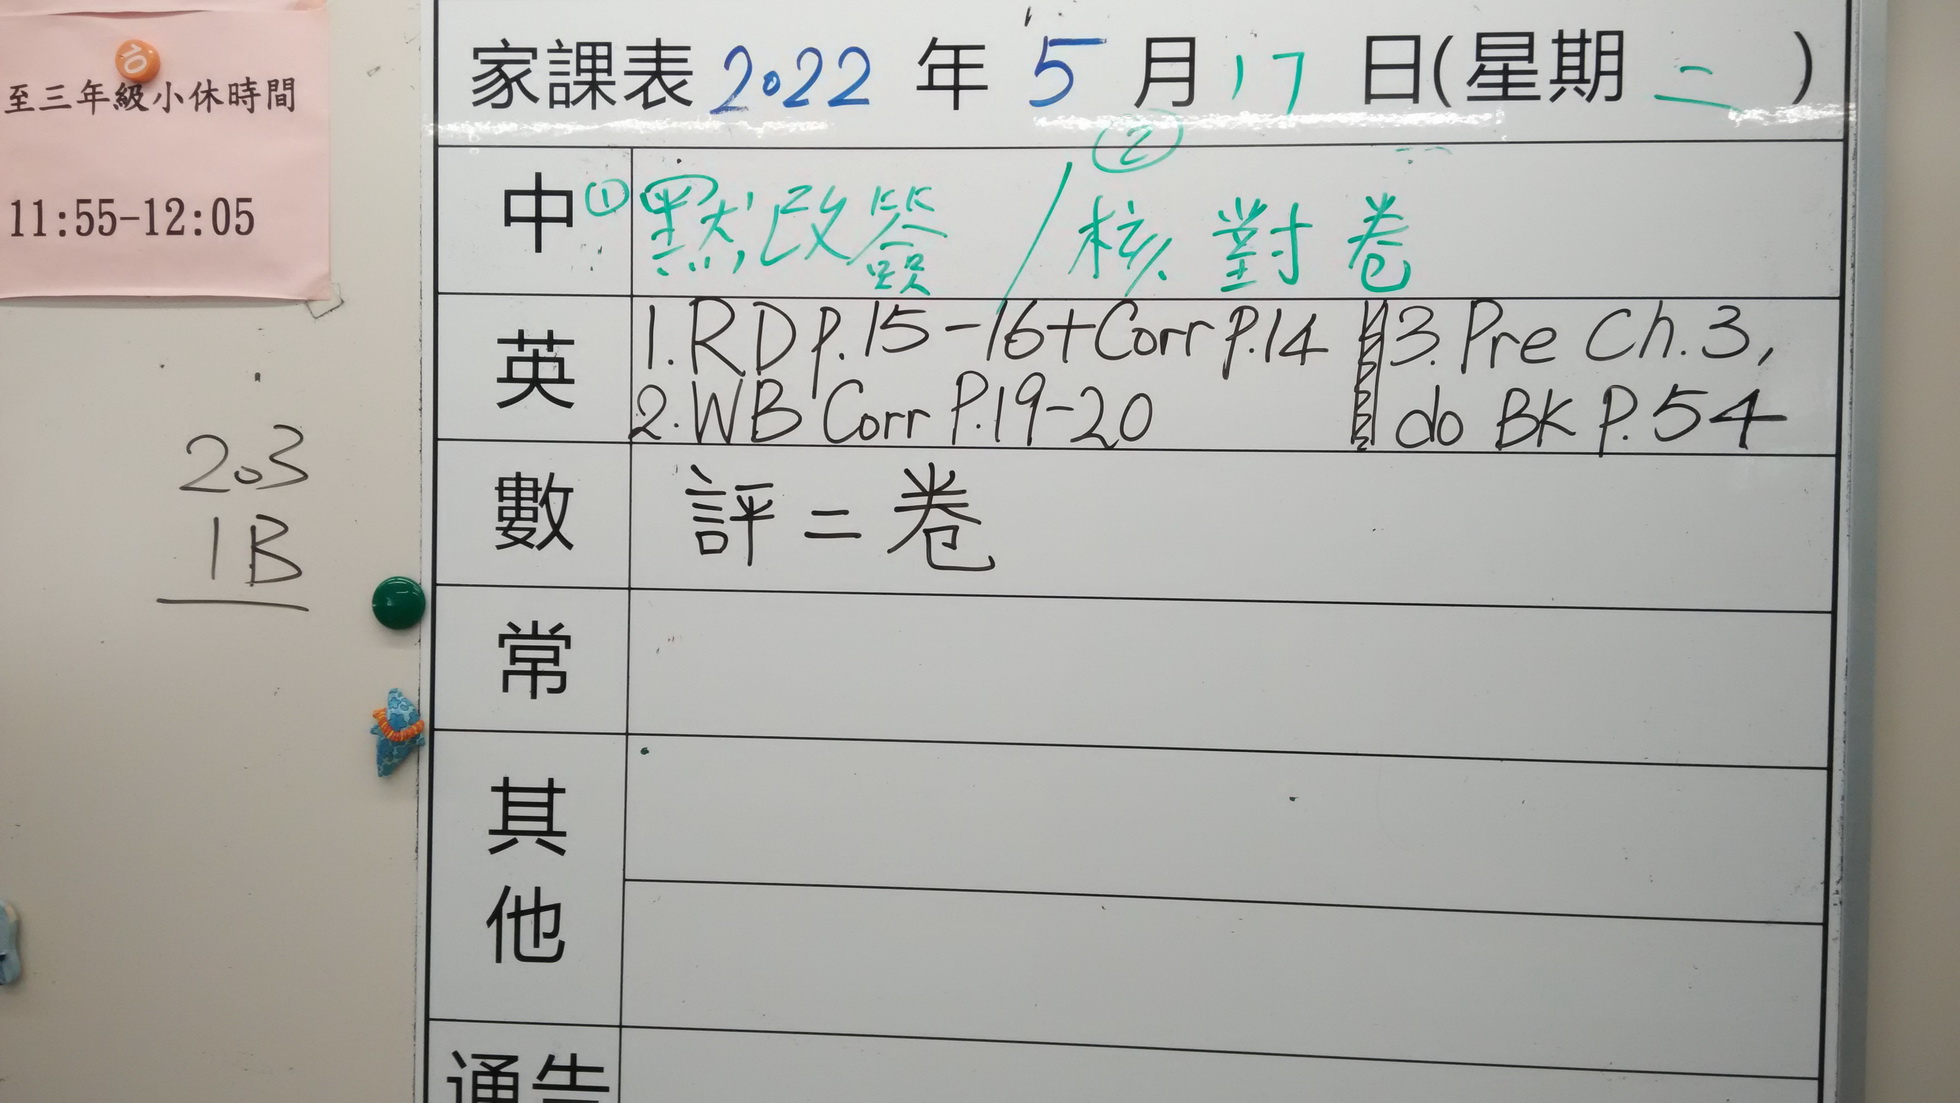 10
至三年級小休時間
11:55-12:05
203
1B
家課表 2022 年 5 月 17 日(星期 二 )
中 ① 默改簽 / ② 核對卷
英 1. RD P.15-16+Corr P.14 3. Pre Ch.3,
2. WB Corr P.19-20 do BK P.54
數 評二卷
常
其他
通告